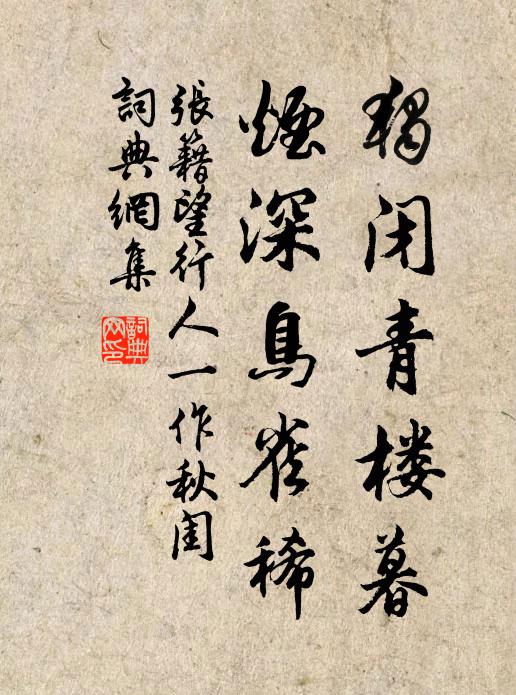 獨闭青楼暮
煙深鳥雀稀
張籍望行人一作秋闺
詞典網集
詞典网印